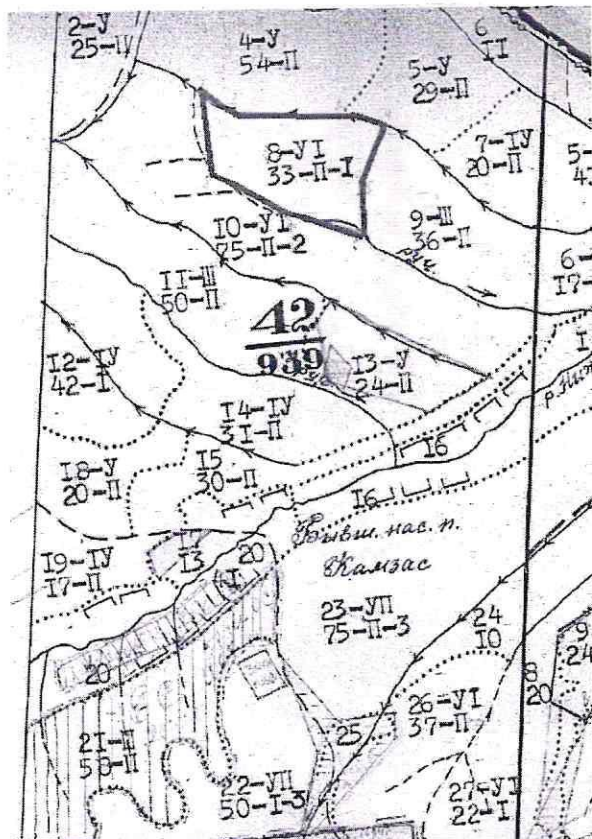 2-У
25-IУ
4-У
54-П
5-У
29-П
6
II
7-IУ
20-П
5-
8-УI
33-П-I
9-Ш
36-П
10-УI
75-П-2
руч.
6-
17-
II-Ш
50-П
42
939
12-IУ
42-I
13-У
24-П
I
р.
14-IУ
31-П
16
18-У
20-П
15
30-П
16
Бывш. нас. п.
Камзас
19-IУ
17-П
13
20
I
23-УП
75-П-3
24
10
20
9
24
8
20
21-П
58-П
25
26-УI
37-П
22-УП
50-I-3
27-УI
22-I